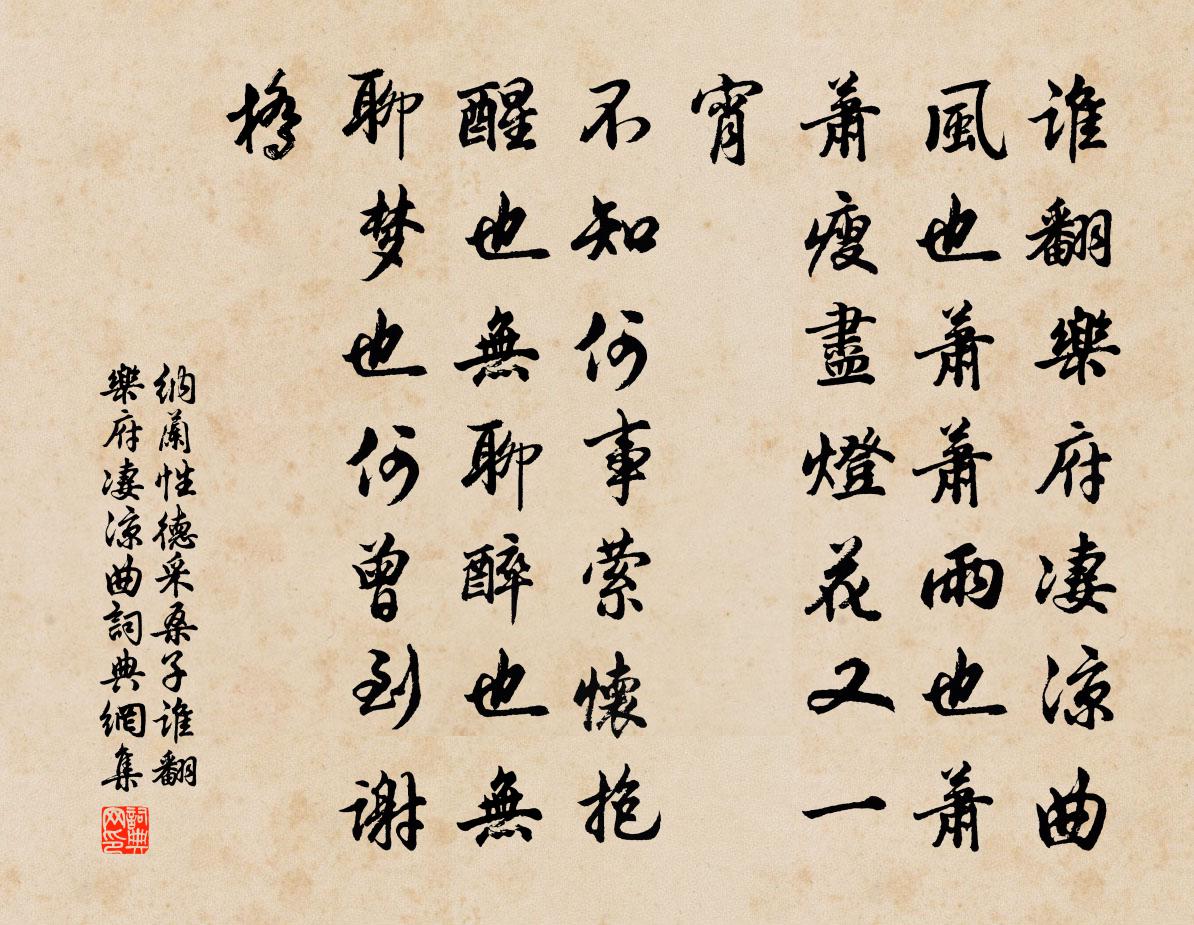 谁翻樂府凄凉曲
風也蕭蕭雨也蕭
蕭瘦盡燈花又一
宵
不知何事萦懷抱
醒也無聊醉也無
聊梦也何曾到谢
橋
纳蘭性德采桑子谁翻
樂府凄凉曲詞典網集
詞典
网印